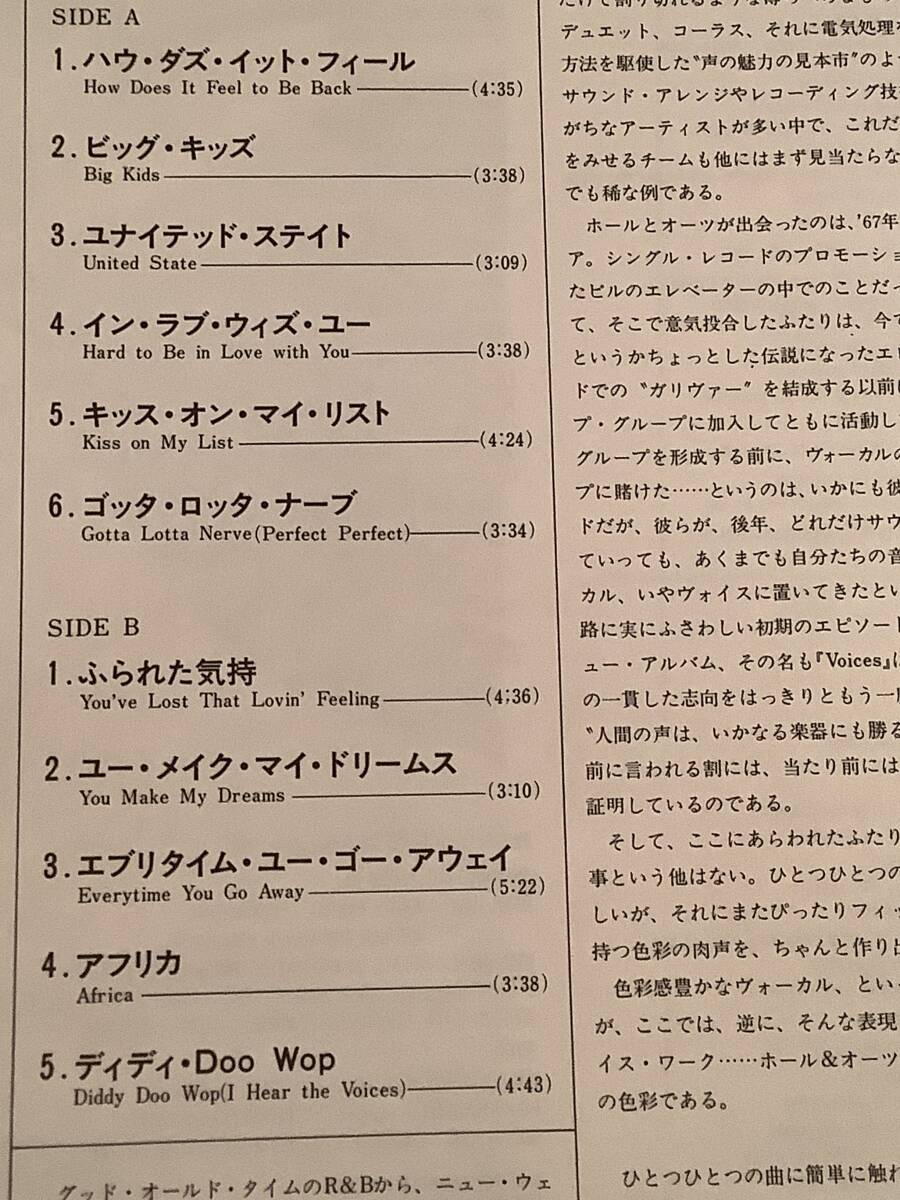 SIDE A
1.ハウ・ダズ・イット・フィール
How Does It Feel to Be Back (4:35)
2.ビッグ・キッズ
Big Kids (3:38)
3.ユナイテッド・ステイト
United State (3:09)
4.イン・ラブ・ウィズ・ユー
Hard to Be in Love with You (3:38)
5.キッス・オン・マイ・リスト
Kiss on My List (4:24)
6.ゴッタ・ロッタ・ナーブ
Gotta Lotta Nerve(Perfect Perfect) (3:34)
SIDE B
1.ふられた気持
You've Lost That Lovin' Feeling (4:36)
2.ユー・メイク・マイ・ドリームス
You Make My Dreams (3:10)
3.エブリタイム・ユー・ゴー・アウェイ
Everytime You Go Away (5:22)
4.アフリカ
Africa (3:38)
5.ディディ・Doo Wop
Diddy Doo Wop(I Hear the Voices) (4:43)
グッド・オールド・タイムのR&Bから、ニュー・ウェ
デュエット、コーラス、それに電気処理
方法を駆使した〝声の魅力の見本市〟のよ
サウンド・アレンジやレコーディング技
がちなアーティストが多い中で、これだ
をみせるチームも他にはまず見当たらな
でも稀な例である。
ホールとオーツが出会ったのは、'67年
ア。シングル・レコードのプロモーショ
たビルのエレベーターの中でのことだっ
て、そこで意気投合したふたりは、今で
というかちょっとした伝説になったエレ
ドでの〝ガリヴァー〟を結成する以前に
プ・グループに加入してともに活動し
グループを形成する前に、ヴォーカルの
プに賭けた……というのは、いかにも彼
ドだが、彼らが、後年、どれだけサウ
ていっても、あくまでも自分たちの音
カル、いやヴォイスに置いてきたとい
路に実にふさわしい初期のエピソード
ュー・アルバム、その名も『Voices』に
の一貫した志向をはっきりともう一
〝人間の声は、いかなる楽器にも勝る
前に言われる割には、当たり前には
証明しているのである。
そして、ここにあらわれたふたり
事という他はない。ひとつひとつの
しいが、それにまたぴったりフィッ
持つ色彩の肉声を、ちゃんと作り出
色彩感豊かなヴォーカル、とい
が、ここでは、逆に、そんな表現
イス・ワーク……ホール&オーツ
の色彩である。
ひとつひとつの曲に簡単に触れ